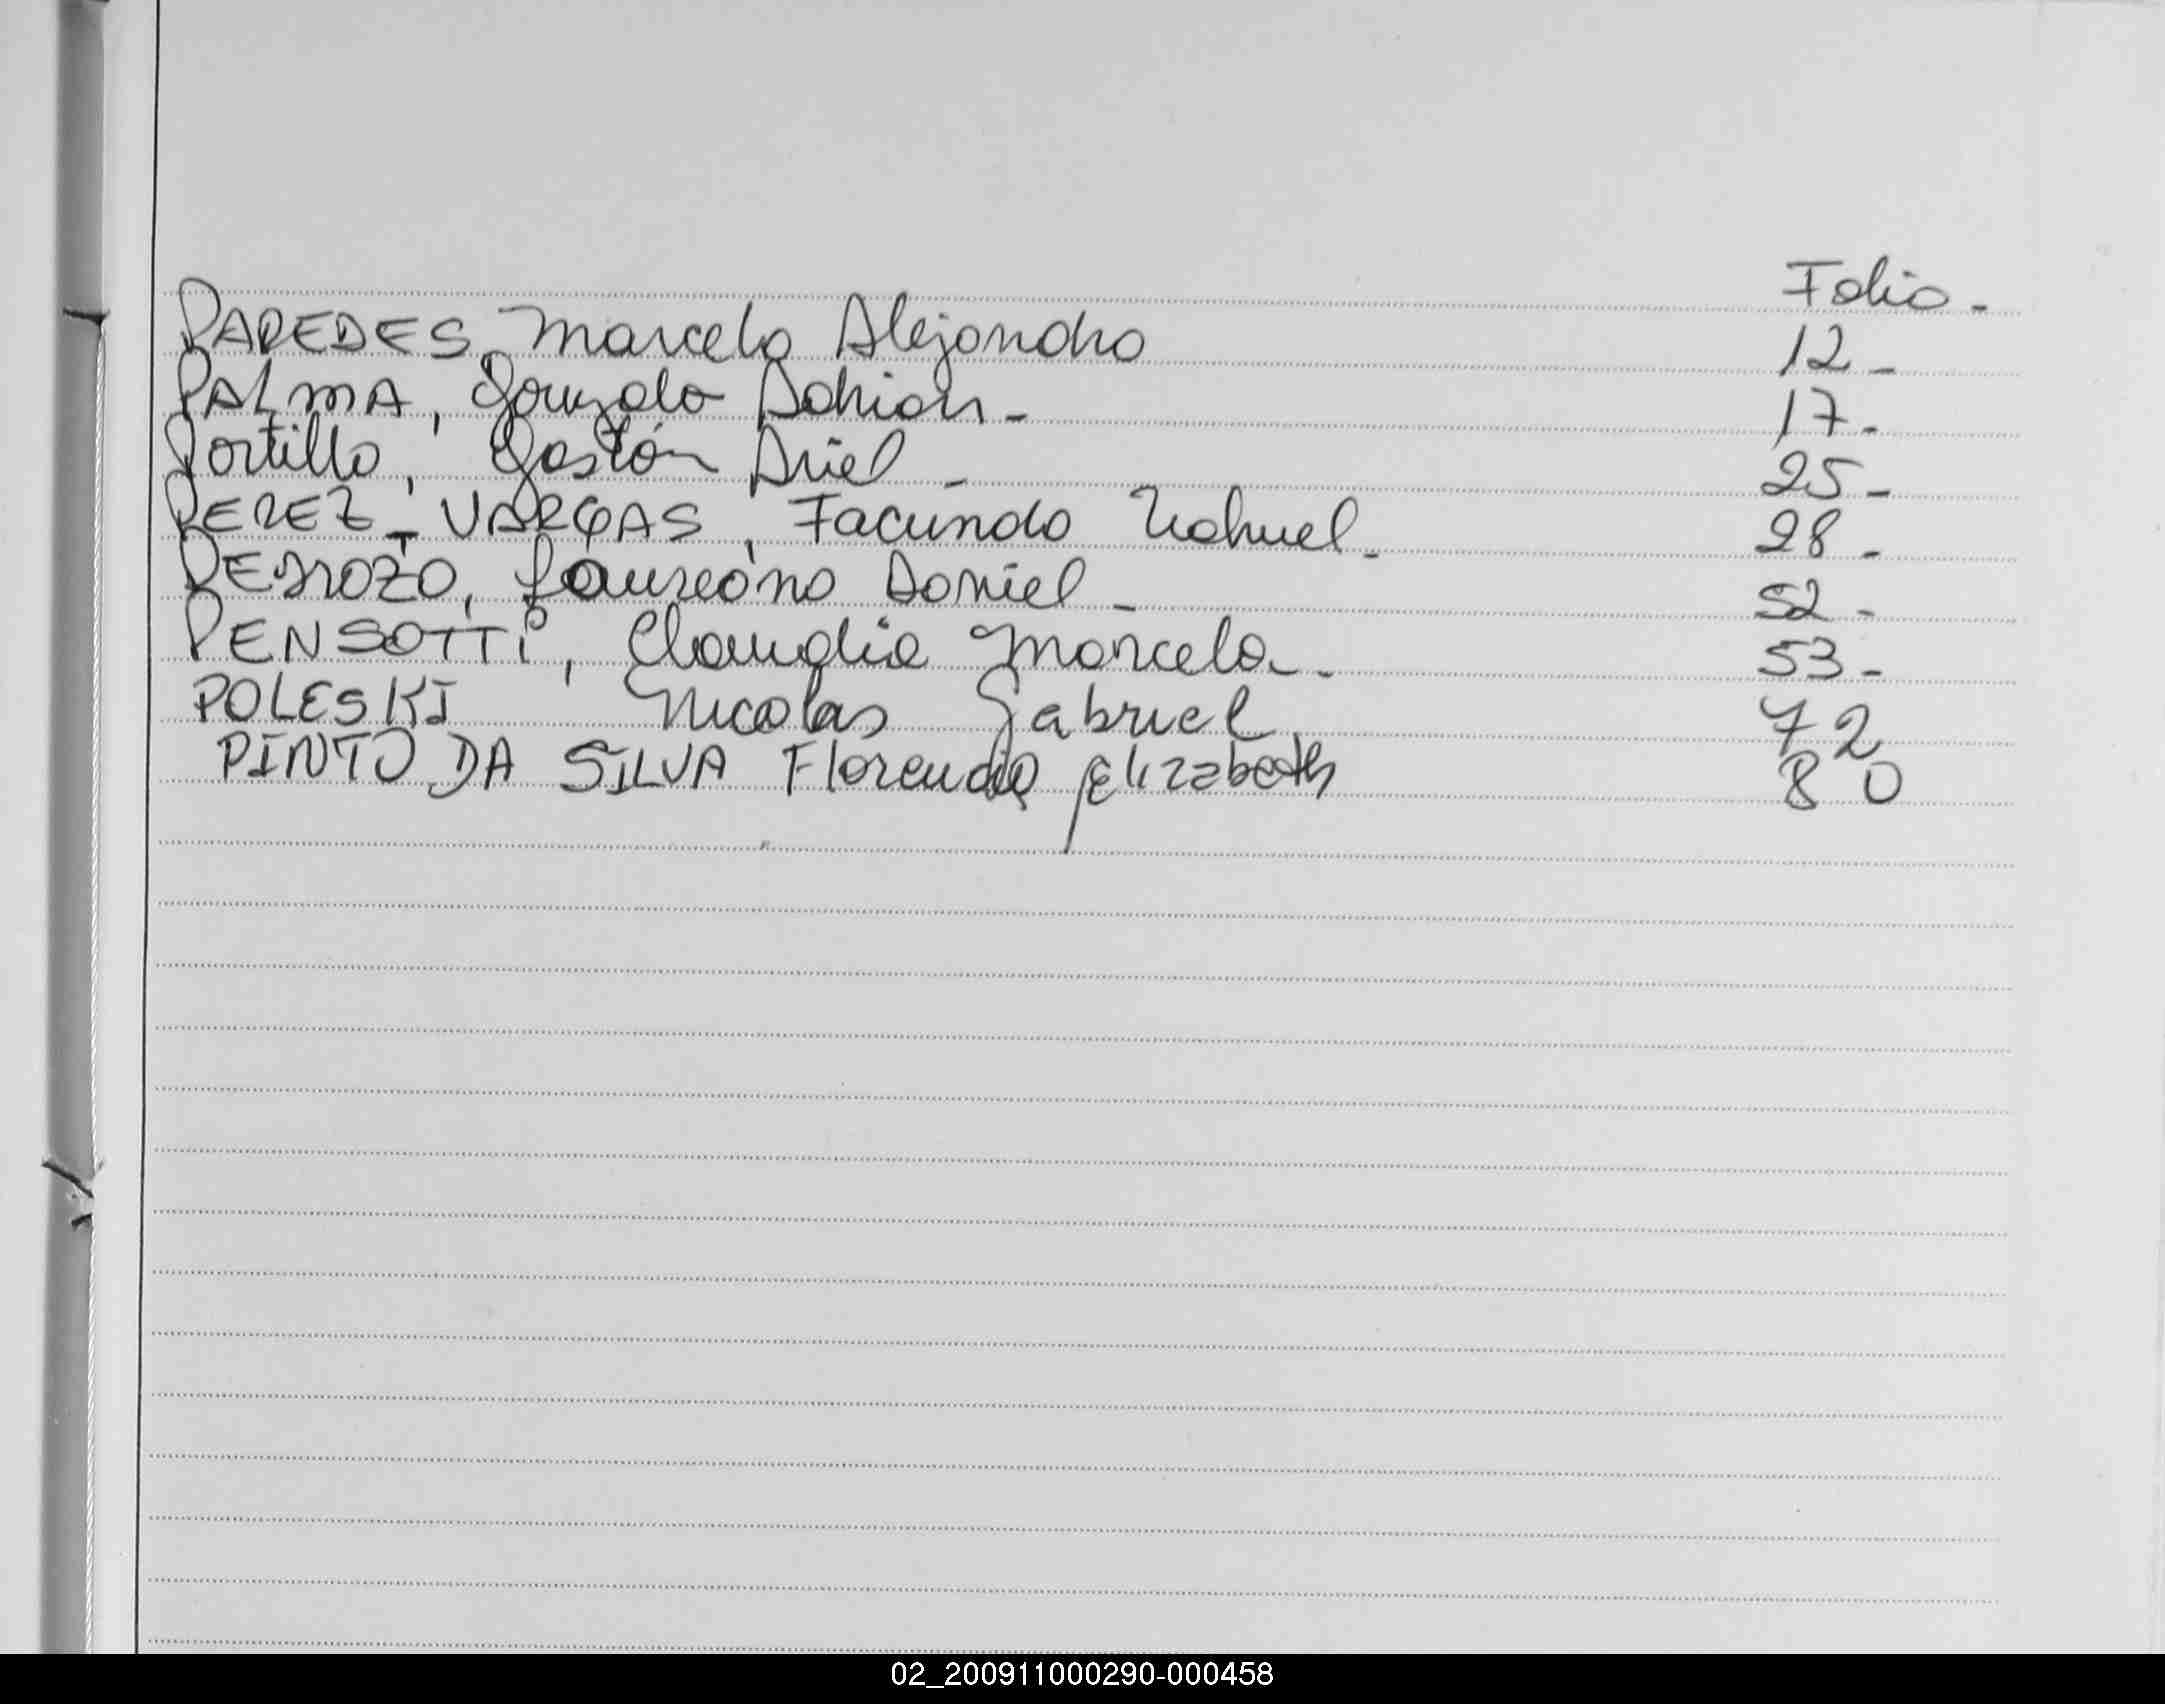 Folio -
PAREDES, Marcelo Alejandro 12 -
PALMA, Gonzalo Adrian - 17 -
Portillo, Gastón Ariel - 25 -
PEREZ - VARGAS, Facundo Nahuel - 28 -
PEDROZO, Laureano Daniel - 52 -
PENSOTTI, Claudia Marcela - 53 -
POLESKI Nicolas Gabriel 72
PINTO DA SILVA Florencia Elizabeth 80
02_200911000290-000458